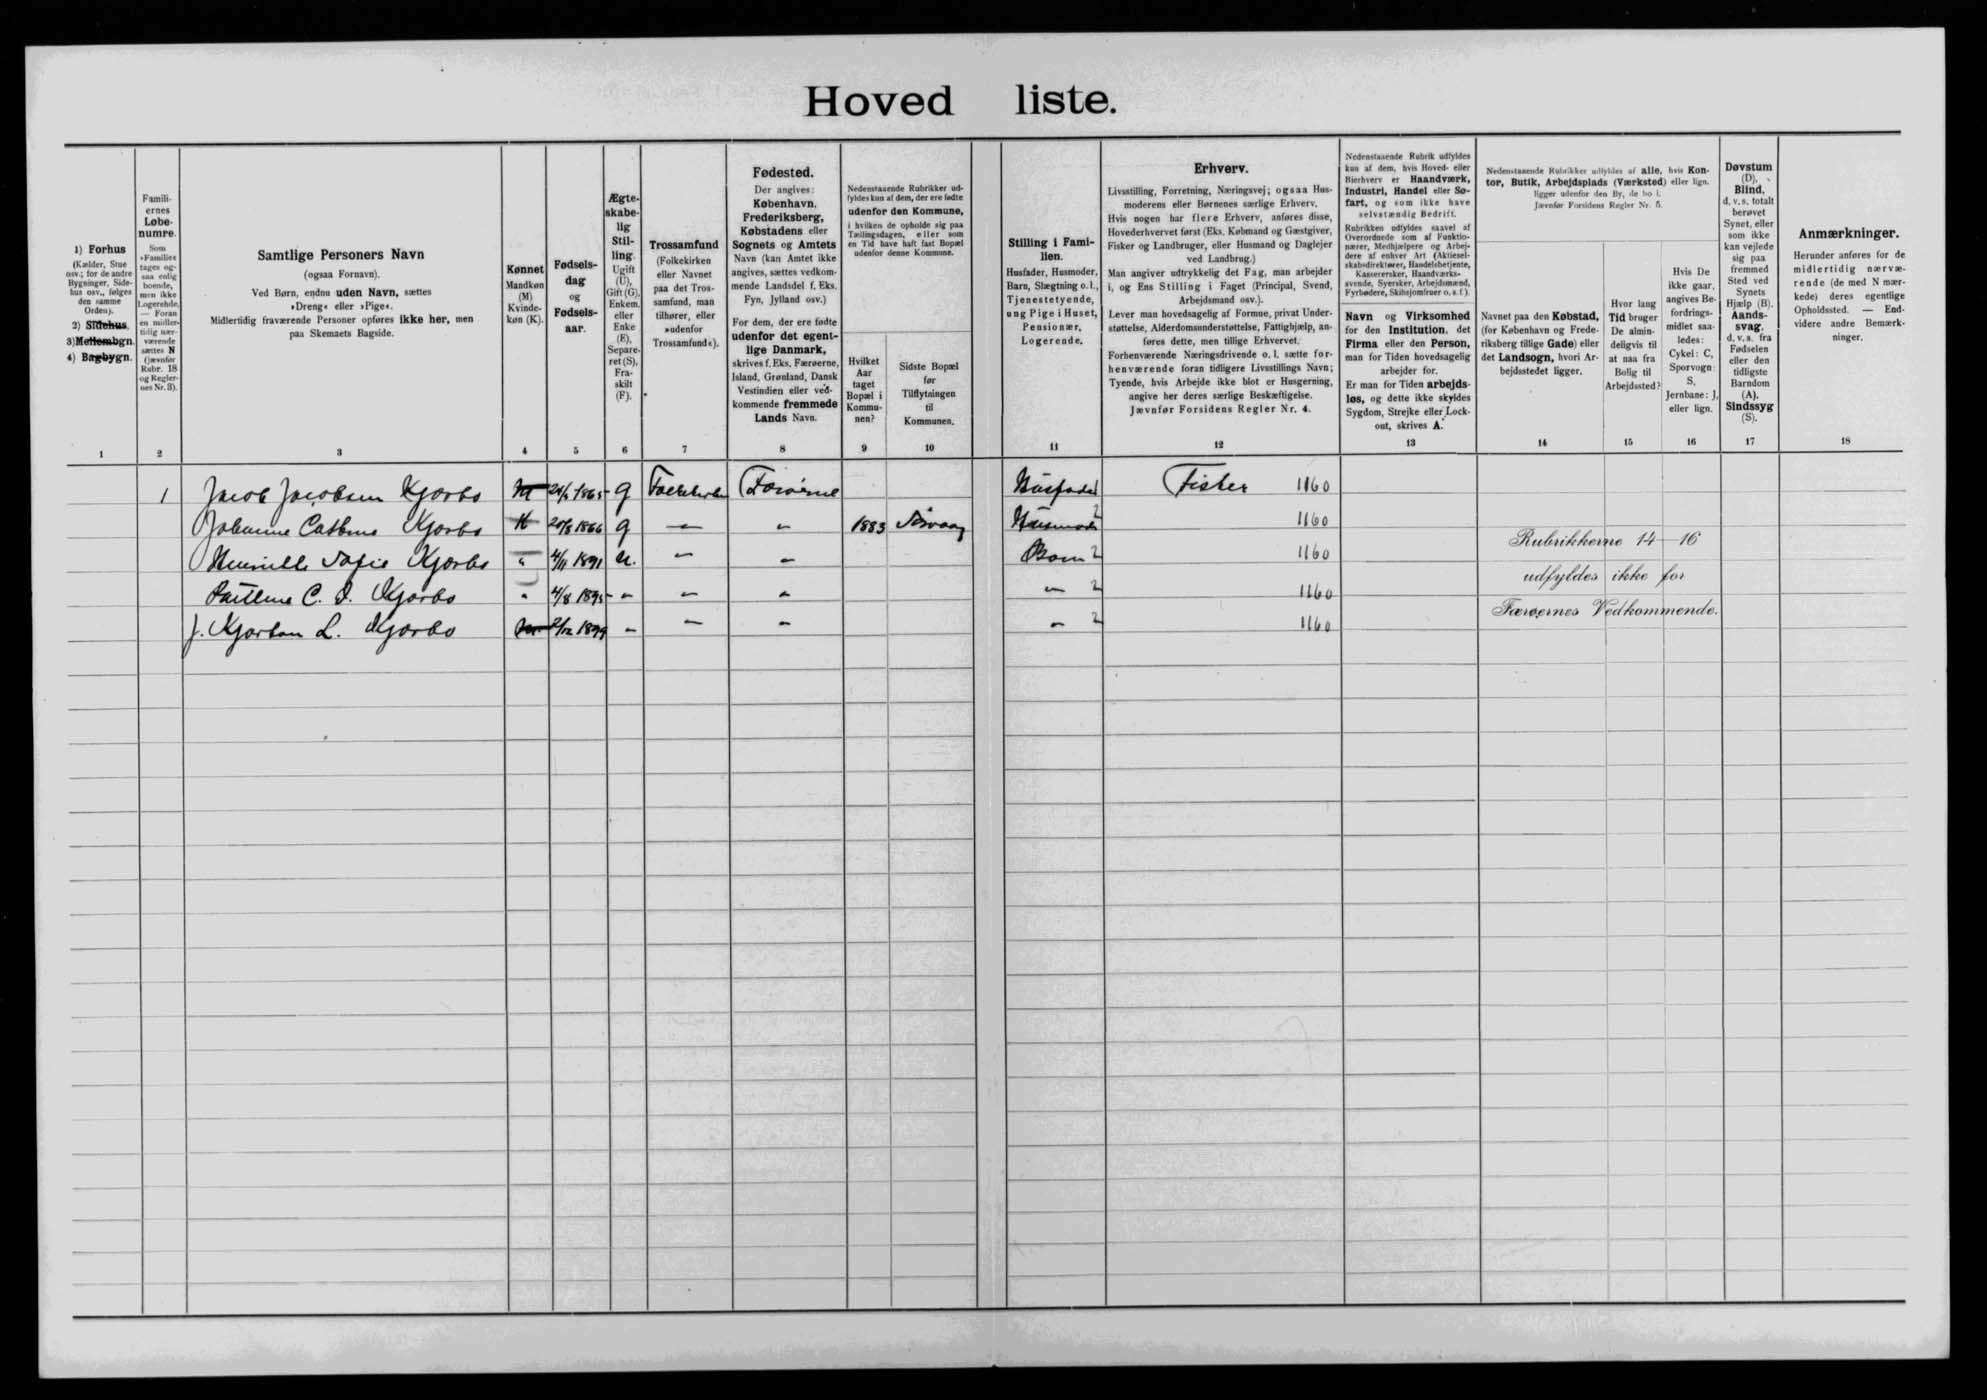 Hoved liste.
1) Forhus
(Kælder, Stue
osv.; for de andre
Bygninger, Side-
hus osv., følges
den samme
Orden).
2) Sidehus.
3) Mellembgn.
4) Bagbygn.
1
Famili-
ernes
Løbe-
numre.
Som
»Familie«
tages og-
saa enlig
boende,
men ikke
Logerende.
— Foran
en midler-
tidig nær-
værende
sættes N
(jævnfør
Rubr. 18
og Regler-
nes Nr. 3).
2
Samtlige Personers Navn
(ogsaa Fornavn).
Ved Børn, endnu uden Navn, sættes
»Dreng« eller »Pige«.
Midlertidig fraværende Personer opføres ikke her, men
paa Skemaets Bagside.
3
Kønnet
Mandkøn
(M)
Kvinde-
køn (K).
4
Fødsels-
dag
og
Fødsels-
aar.
5
Ægte-
skabe-
lig
Stil-
ling.
Ugift
(U),
Gift (G),
Enkem.
eller
Enke
(E),
Separe-
ret (S),
Fra-
skilt
(F).
6
Trossamfund
(Folkekirken
eller Navnet
paa det Tros-
samfund, man
tilhører, eller
»udenfor
Trossamfund«).
7
Fødested.
Der angives:
København,
Frederiksberg,
Købstadens eller
Sognets og Amtets
Navn (kan Amtet ikke
angives, sættes vedkom-
mende Landsdel f. Eks.
Fyn, Jylland osv.)
For dem, der ere fødte
udenfor det egent-
lige Danmark,
skrives f. Eks. Færøerne,
Island, Grønland, Dansk
Vestindien eller ved-
kommende fremmede
Lands Navn.
8
Nedenstaaende Rubrikker ud-
fyldes kun af dem, der ere fødte
udenfor den Kommune,
i hvilken de opholde sig paa
Tællingsdagen, eller som
en Tid have haft fast Bopæl
udenfor denne Kommune.
Hvilket
Aar
taget
Bopæl i
Kommu-
nen?
9
Sidste Bopæl
før
Tilflytningen
til
Kommunen.
10
Stilling i Fami-
lien.
Husfader, Husmoder,
Barn, Slægtning o. l.,
Tjenestetyende,
ung Pige i Huset,
Pensionær,
Logerende.
11
Erhverv.
Livsstilling, Forretning, Næringsvej; ogsaa Hus-
moderens eller Børnenes særlige Erhverv.
Hvis nogen har flere Erhverv, anføres disse,
Hovederhvervet først (Eks. Købmand og Gæstgiver,
Fisker og Landbruger, eller Husmand og Daglejer
ved Landbrug.)
Man angiver udtrykkelig det Fag, man arbejder
i, og Ens Stilling i Faget (Principal, Svend,
Arbejdsmand osv.).
Lever man hovedsagelig af Formue, privat Under-
støttelse, Alderdomsunderstøttelse, Fattighjælp, an-
føres dette, men tillige Erhvervet.
Forhenværende Næringsdrivende o. l. sætte for-
henværende foran tidligere Livsstillings Navn;
Tyende, hvis Arbejde ikke blot er Husgerning,
angive her deres særlige Beskæftigelse.
Jævnfør Forsidens Regler Nr. 4.
12
Nedenstaaende Rubrik udfyldes
kun af dem, hvis Hoved- eller
Bierhverv er Haandværk,
Industri, Handel eller Sø-
fart, og som ikke have
selvstændig Bedrift.
Rubrikken udfyldes saavel af
Overordnede som af Funktio-
nærer, Medhjælpere og Arbej-
dere af enhver Art (Aktiesel-
skabsdirektører, Handelsbetjente,
Kassererersker, Haandværks-
svende, Syersker, Arbejdsmænd,
Fyrbødere, Skibsjomfruer o. s. f.).
Navn og Virksomhed
for den Institution, det
Firma eller den Person,
man for Tiden hovedsagelig
arbejder for.
Er man for Tiden arbejds-
løs, og dette ikke skyldes
Sygdom, Strejke eller Lock-
out, skrives A.
13
Nedenstaaende Rubrikker udfyldes af alle, hvis Kon-
tor, Butik, Arbejdsplads (Værksted) eller lign.
ligger udenfor den By, de bo i.
Jævnfør Forsidens Regler Nr. 5.
Navnet paa den Købstad,
(for København og Frede-
riksberg tillige Gade) eller
det Landsogn, hvori Ar-
bejdsstedet ligger.
14
Hvor lang
Tid bruger
De almin-
deligvis til
at naa fra
Bolig til
Arbejdssted?
15
Hvis De
ikke gaar,
angives Be-
fordrings-
midlet saa-
ledes:
Cykel: C,
Sporvogn:
S,
Jernbane: J,
eller lign.
16
Døvstum
(D).
Blind,
d. v. s. totalt
berøvet
Synet, eller
som ikke
kan vejlede
sig paa
fremmed
Sted ved
Synets
Hjælp (B).
Aands-
svag,
d. v. s. fra
Fødselen
eller den
tidligste
Barndom
(A).
Sindssyg
(S).
17
Anmærkninger.
Herunder anføres for de
midlertidig nærvæ-
rende (de med N mær-
kede) deres egentlige
Opholdssted. — End-
videre andre Bemærk-
ninger.
18
1 Jacob Jacobsen Kjærbo M 1865 g Folkekirken Færøerne Husfader Fisker 1160
Johanne Cathrine Kjærbo K 20/8 1866 g — " 1883 Sørvaag Husmoder 2 1160
Sofie Kjærbo " 4/11 1891 u. " " Barn 2 1160
C. Kjærbo " 4/8 1895 " " " " 2 1160
J. Kjartan L. Kjærbo M. 2/12 1899 " " " " 2 1160
Rubrikkerne 14—16
udfyldes ikke for
Færøernes Vedkommende.